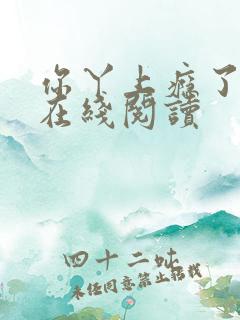 你丫上瘾了
在綫閱讀
四十二吙
未经同意禁止转载